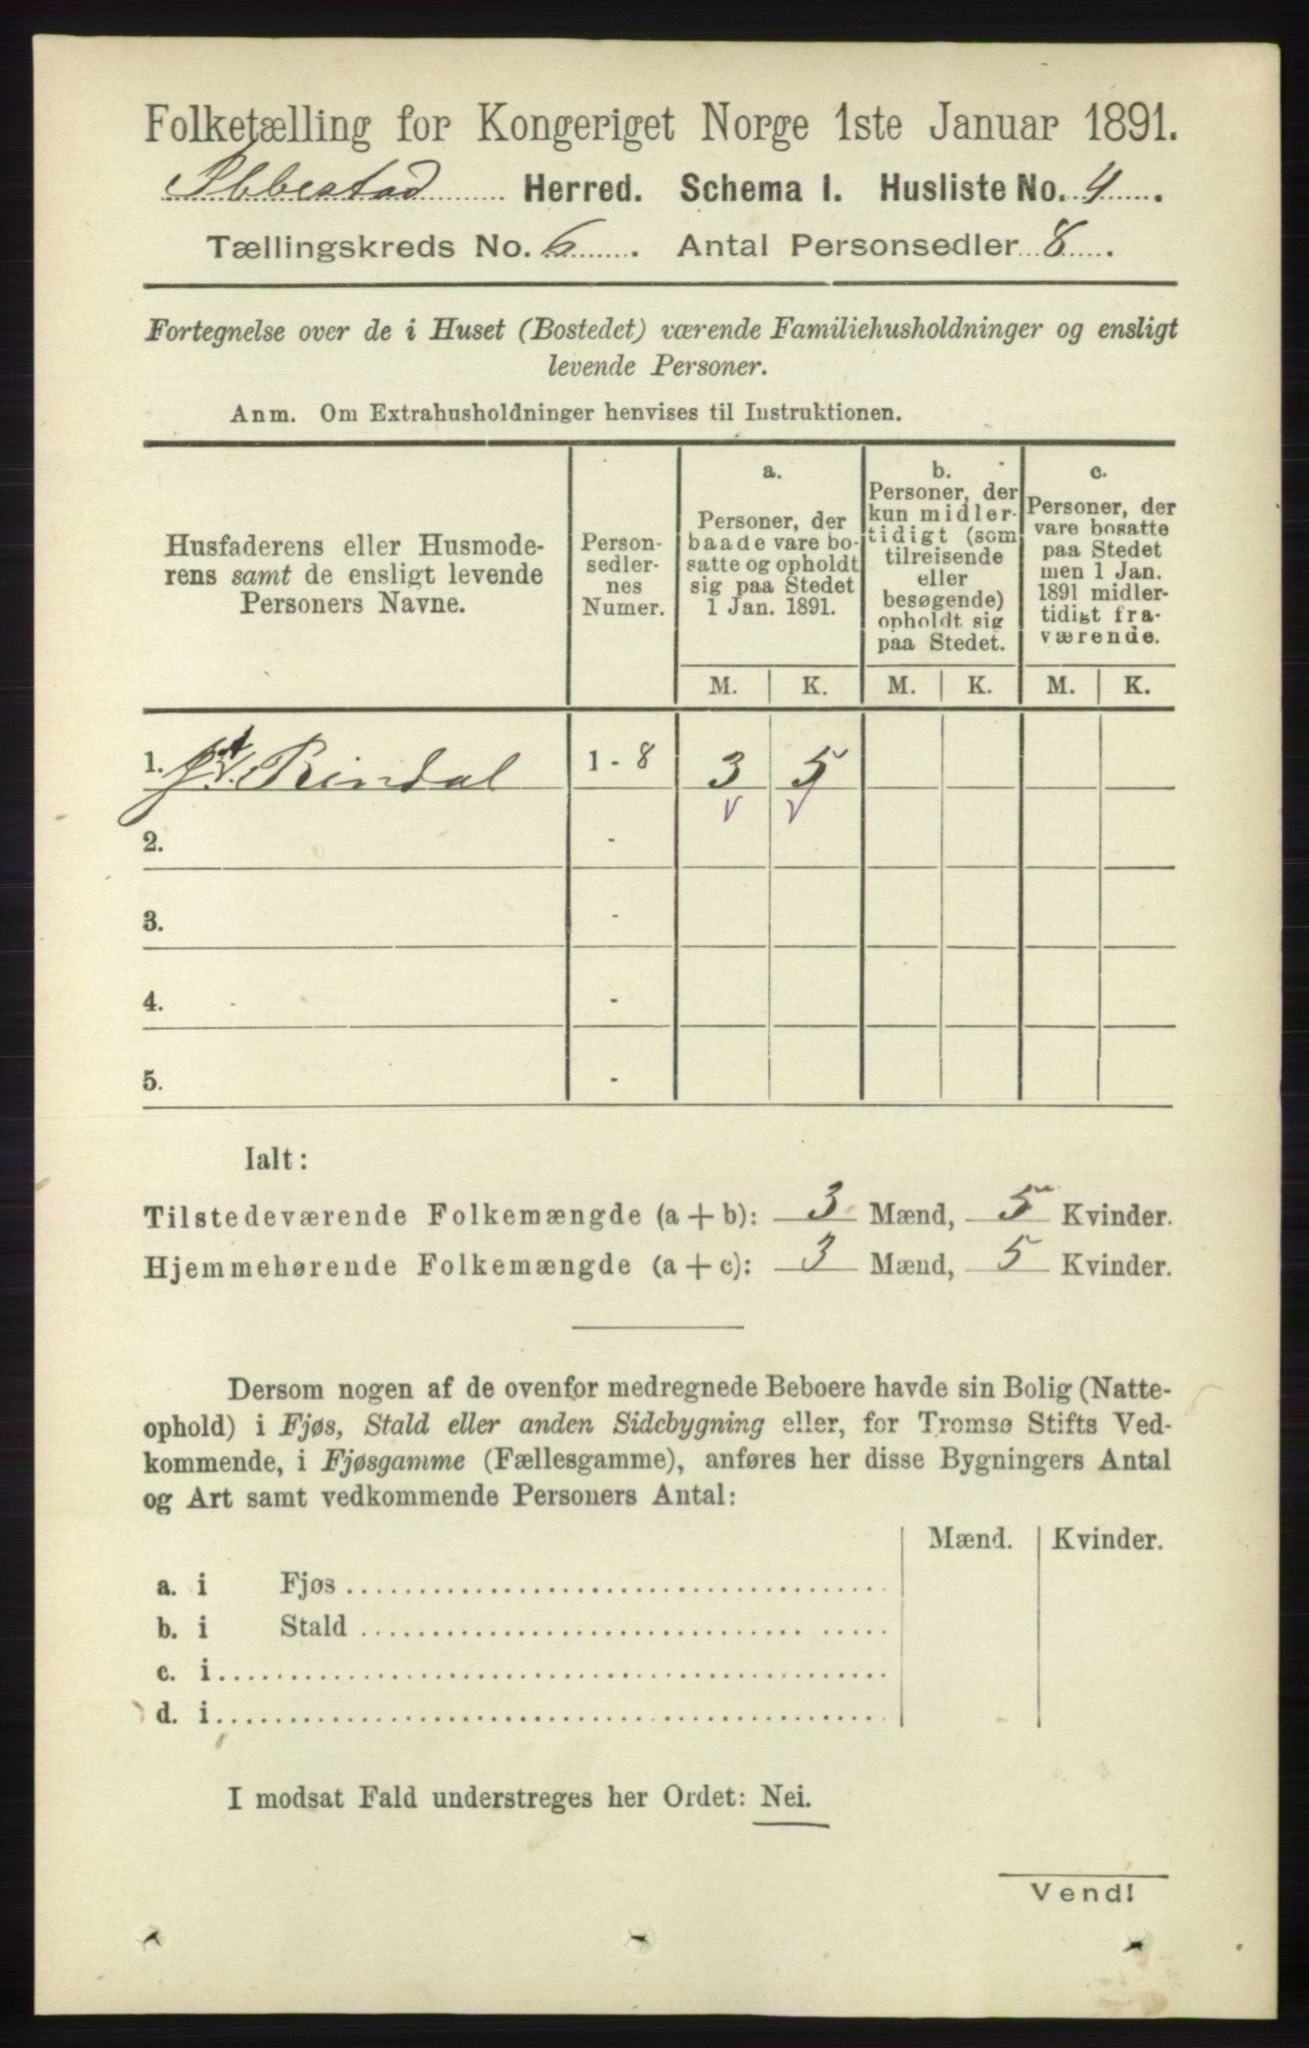 Folketælling for Kongeriget Norge 1ste Januar 1891.
Ibbestad Herred. Schema I. Husliste No. 4.
Tællingskreds No. 6. Antal Personsedler 8.
Fortegnelse over de i Huset (Bostedet) værende Familiehusholdninger og ensligt
levende Personer.
Anm. Om Extrahusholdninger henvises til Instruktionen.
Husfaderens eller Husmode-
rens samt de ensligt levende
Personers Navne.
Person-
sedler-
nes
Numer.
a.
Personer, der
baade vare bo-
satte og opholdt
sig paa Stedet
1 Jan. 1891.
b.
Personer, der
kun midler-
tidigt (som
tilreisende
eller
besøgende)
opholdt sig
paa Stedet.
c.
Personer, der
vare bosatte
paa Stedet
men 1 Jan.
1891 midler-
tidigt fra-
værende.
M. K. M. K. M. K.
1. Rindal 1 - 8 3 5
2. -
3. -
4. -
5. -
Ialt:
Tilstedeværende Folkemængde (a + b): 3 Mænd, 5 Kvinder.
Hjemmehørende Folkemængde (a + c): 3 Mænd, 5 Kvinder.
Dersom nogen af de ovenfor medregnede Beboere havde sin Bolig (Natte-
ophold) i Fjøs, Stald eller anden Sidebygning eller, for Tromsø Stifts Ved-
kommende, i Fjøsgamme (Fællesgamme), anføres her disse Bygningers Antal
og Art samt vedkommende Personers Antal:
Mænd. Kvinder.
a. i Fjøs
b. i Stald
c. i
d. i
I modsat Fald understreges her Ordet: Nei.
Vend!